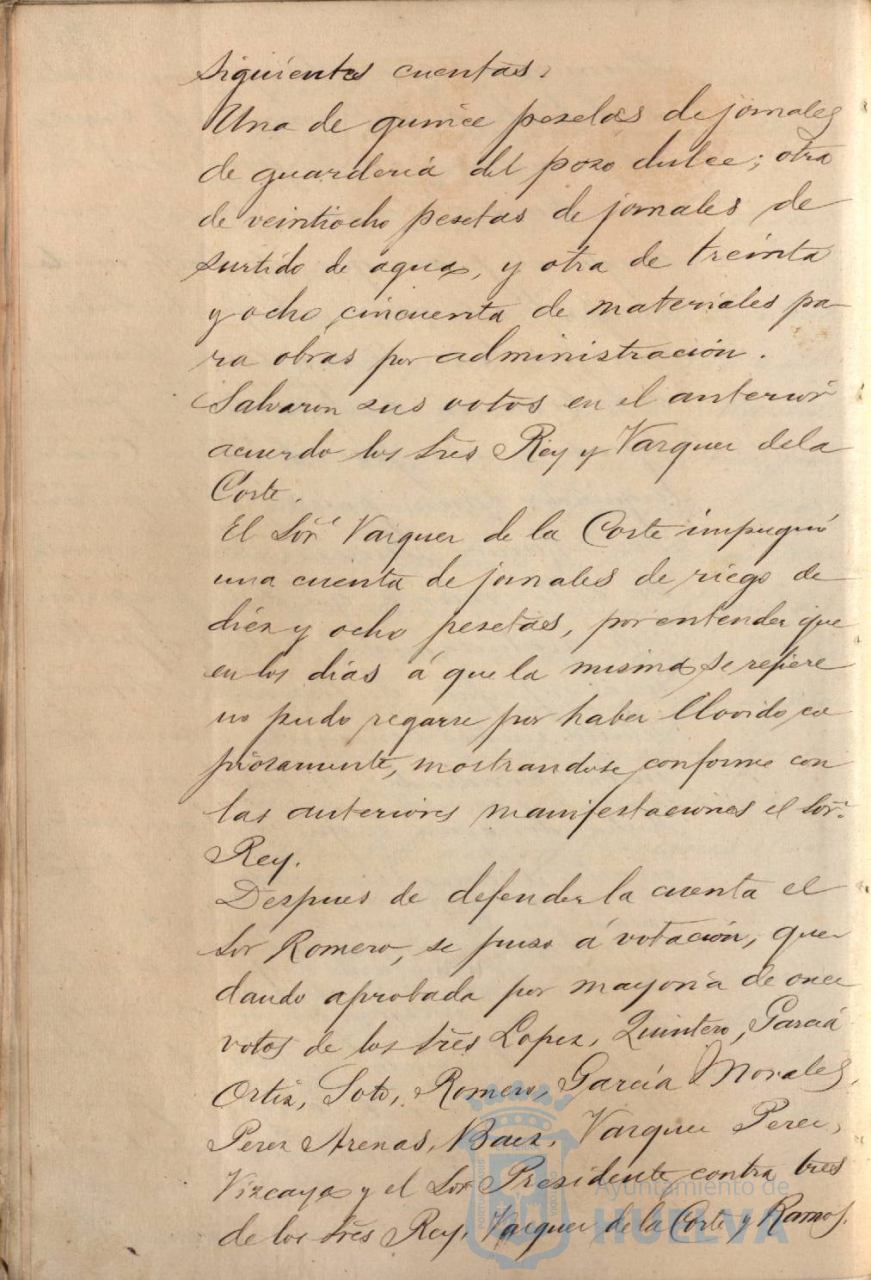 siguientes cuentas:
Una de quince pesetas de jornales
de guarderia del pozo dulce; otra
de veintiocho pesetas de jornales de
surtido de agua, y otra de treinta
y ocho, cincuenta de materiales pa-
ra obras por administración.
Salvaron sus votos en el anterior
acuerdo los Sres Rey y Vazquez de la
Corte.
El Sor Vazquez de la Corte impugnó
una cuenta de jornales de riego de
diez y ocho pesetas, por entender que
en los dias á que la misma se refiere
no pudo regarse por haber llovido co
piosamente, mostrandose conforme con
las anteriores manifestaciones el Sor
Rey.
Despues de defender la cuenta el
Sor Romero, se puso á votación, que-
dando aprobada por mayoria de once
votos de los Sres Lopez, Quintero, García
Ortiz, Soto, Romero, García Morales,
Perez Arenas, Baez, Vazquez Perez,
Vizcaya y el Sor Presidente contra tres
de los Sres Rey, Vazquez de la Corte y Ramos.
Ayuntamiento de
HUELVA